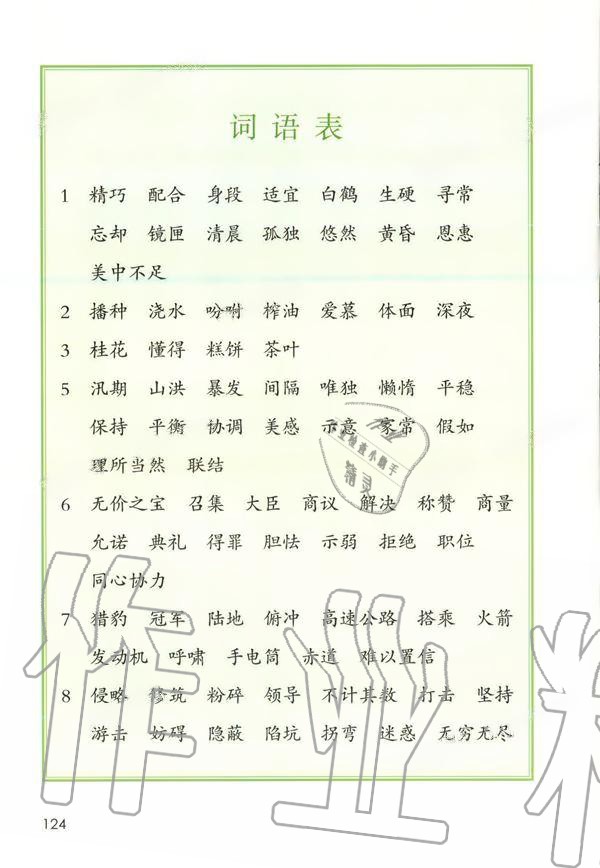 词语表
1 精巧 配合 身段 适宜 白鹤 生硬 寻常
忘却 镜匣 清晨 孤独 悠然 黄昏 恩惠
美中不足
2 播种 浇水 吩咐 榨油 爱慕 体面 深夜
3 桂花 懂得 糕饼 茶叶
5 汛期 山洪 暴发 间隔 唯独 懒惰 平稳
保持 平衡 协调 美感 示意 家常 假如
理所当然 联结
6 无价之宝 召集 大臣 商议 解决 称赞 商量
允诺 典礼 得罪 胆怯 示弱 拒绝 职位
同心协力
7 猎豹 冠军 陆地 俯冲 高速公路 搭乘 火箭
发动机 呼啸 手电筒 赤道 难以置信
8 侵略 修筑 粉碎 领导 不计其数 打击 坚持
游击 妨碍 隐蔽 陷坑 拐弯 迷惑 无穷无尽
124
作业精
精灵